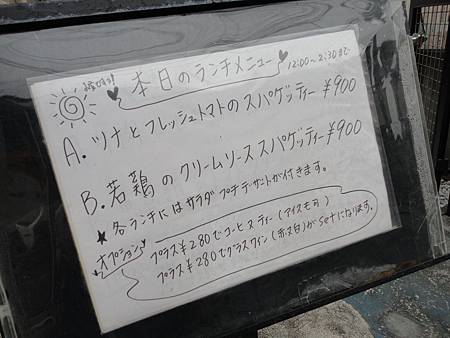 本日のランチメニュー
12:00〜2:30まで
A. ツナとフレッシュトマトのスパゲッティー ¥900
B. 若鶏のクリームソーススパゲッティー ¥900
★各ランチにはサラダプチデザートが付きます。
オプション
プラス¥280でコーヒ又ティー(アイスも可)
プラス¥280でグラスワイン(赤又白)がsetになります。